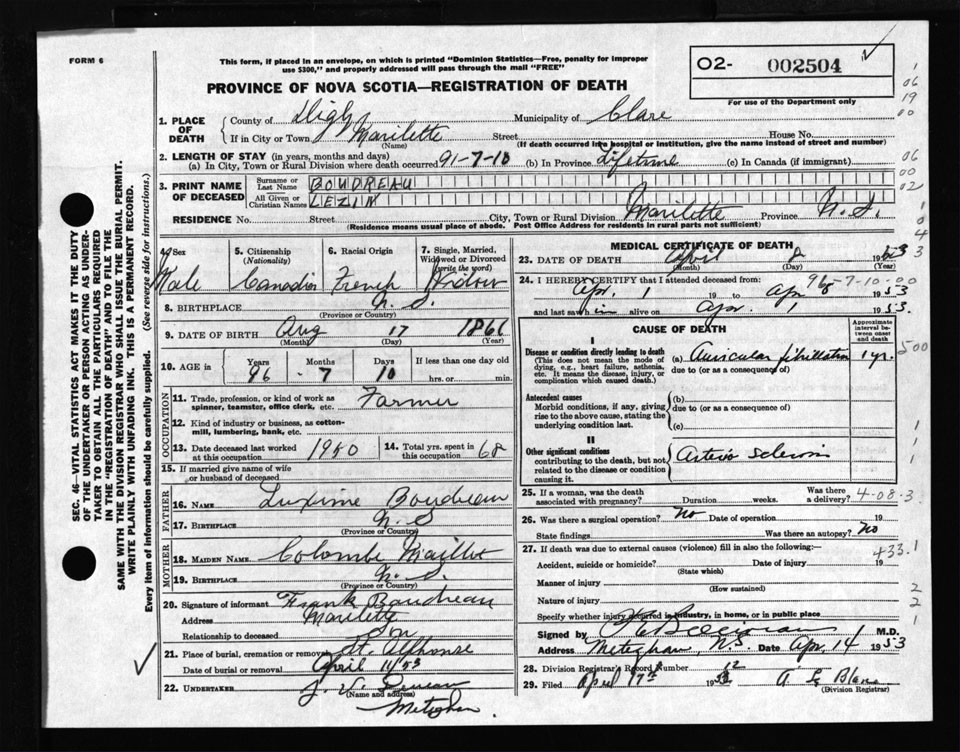 FORM 6
This form, if placed in an envelope, on which is printed "Dominion Statistics—Free, penalty for improper
use $300," and properly addressed will pass through the mail "FREE"
02- 002504
For use of the Department only
PROVINCE OF NOVA SCOTIA—REGISTRATION OF DEATH
1. PLACE OF DEATH
County of Digby Municipality of Clare
If in City or Town Marilette Street House No.
(Name) (If death occurred in a hospital or institution, give the name instead of street and number)
2. LENGTH OF STAY (in years, months and days)
(a) In City, Town or Rural Division where death occurred 91-7-10 (b) In Province Lifetime (c) In Canada (if immigrant)
3. PRINT NAME OF DECEASED
Surname or Last Name BOUDREAU
All Given or Christian Names LEZIN
RESIDENCE No. Street City, Town or Rural Division Marilette Province N.S.
(Residence means usual place of abode. Post Office Address for residents in rural parts not sufficient)
4. Sex Male
5. Citizenship (Nationality) Canadian
6. Racial Origin French
7. Single, Married, Widowed or Divorced (write the word) Widow
8. BIRTHPLACE N.S.
(Province or Country)
9. DATE OF BIRTH Aug 17 1866
(Month) (Day) (Year)
10. AGE in Years Months Days If less than one day old
96 - 7 10 hrs. or min.
OCCUPATION
11. Trade, profession, or kind of work as spinner, teamster, office clerk, etc. Farmer
12. Kind of industry or business, as cotton-mill, lumbering, bank, etc.
13. Date deceased last worked at this occupation 1950
14. Total yrs. spent in this occupation 68
15. If married give name of wife or husband of deceased
FATHER
16. NAME Boudreau
17. BIRTHPLACE N.S
(Province or Country)
MOTHER
18. MAIDEN NAME Colombe Maillet
19. BIRTHPLACE N.S.
(Province or Country)
20. Signature of informant Frank Boudreau
Address Marilette
Relationship to deceased Son
21. Place of burial, cremation or removal St. Alphonse
Date of burial or removal April 11/53
22. UNDERTAKER
(Name and address)
Meteghan
MEDICAL CERTIFICATE OF DEATH
23. DATE OF DEATH April 8 1953
(Month) (Day) (Year)
24. I HEREBY CERTIFY that I attended deceased from: 96-7-10-00
Apr. 1 19 to Apr 8 1953
and last saw him alive on Apr. 1 1953.
CAUSE OF DEATH
Approximate interval between onset and death
I
Disease or condition directly leading to death (a) Auricular fibrillation 1 yr.
(This does not mean the mode of dying, e.g., heart failure, asthenia, etc. It means the disease, injury, or complication which caused death.)
due to (or as a consequence of)
Antecedent causes
Morbid conditions, if any, giving rise to the above cause, stating the underlying condition last.
(b)
due to (or as a consequence of)
(c)
II
Other significant conditions
contributing to the death, but not related to the disease or condition causing it.
Arterio sclerosis
25. If a woman, was the death associated with pregnancy? Duration weeks. Was there a delivery? 4-08-3
26. Was there a surgical operation? No Date of operation 19
State findings Was there an autopsy? No
27. If death was due to external causes (violence) fill in also the following:—
433.1
Accident, suicide or homicide? Date of injury 19
(State which)
Manner of injury
(How sustained)
Nature of injury
Specify whether injury occurred in industry, in home, or in public place
Signed by M.D.
Address Meteghan, N.S. Date Apr. 14 1953
28. Division Registrar's Record Number 12
29. Filed April 17th 1953
(Division Registrar)
SEC. 46—VITAL STATISTICS ACT MAKES IT THE DUTY
OF THE UNDERTAKER OR PERSON ACTING AS UNDER-
TAKER TO OBTAIN ALL THE PARTICULARS REQUIRED
IN THE "REGISTRATION OF DEATH" AND TO FILE THE
SAME WITH THE DIVISION REGISTRAR WHO SHALL ISSUE THE BURIAL PERMIT.
WRITE PLAINLY WITH UNFADING INK. THIS IS A PERMANENT RECORD.
Every item of information should be carefully supplied. (See reverse side for instructions.)